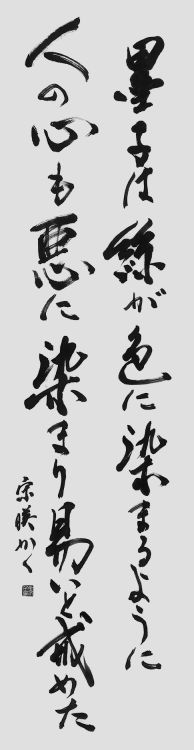 墨子は絲が色に染まるように
人の心も悪に染まり易いと戒めた
宗瞨かく